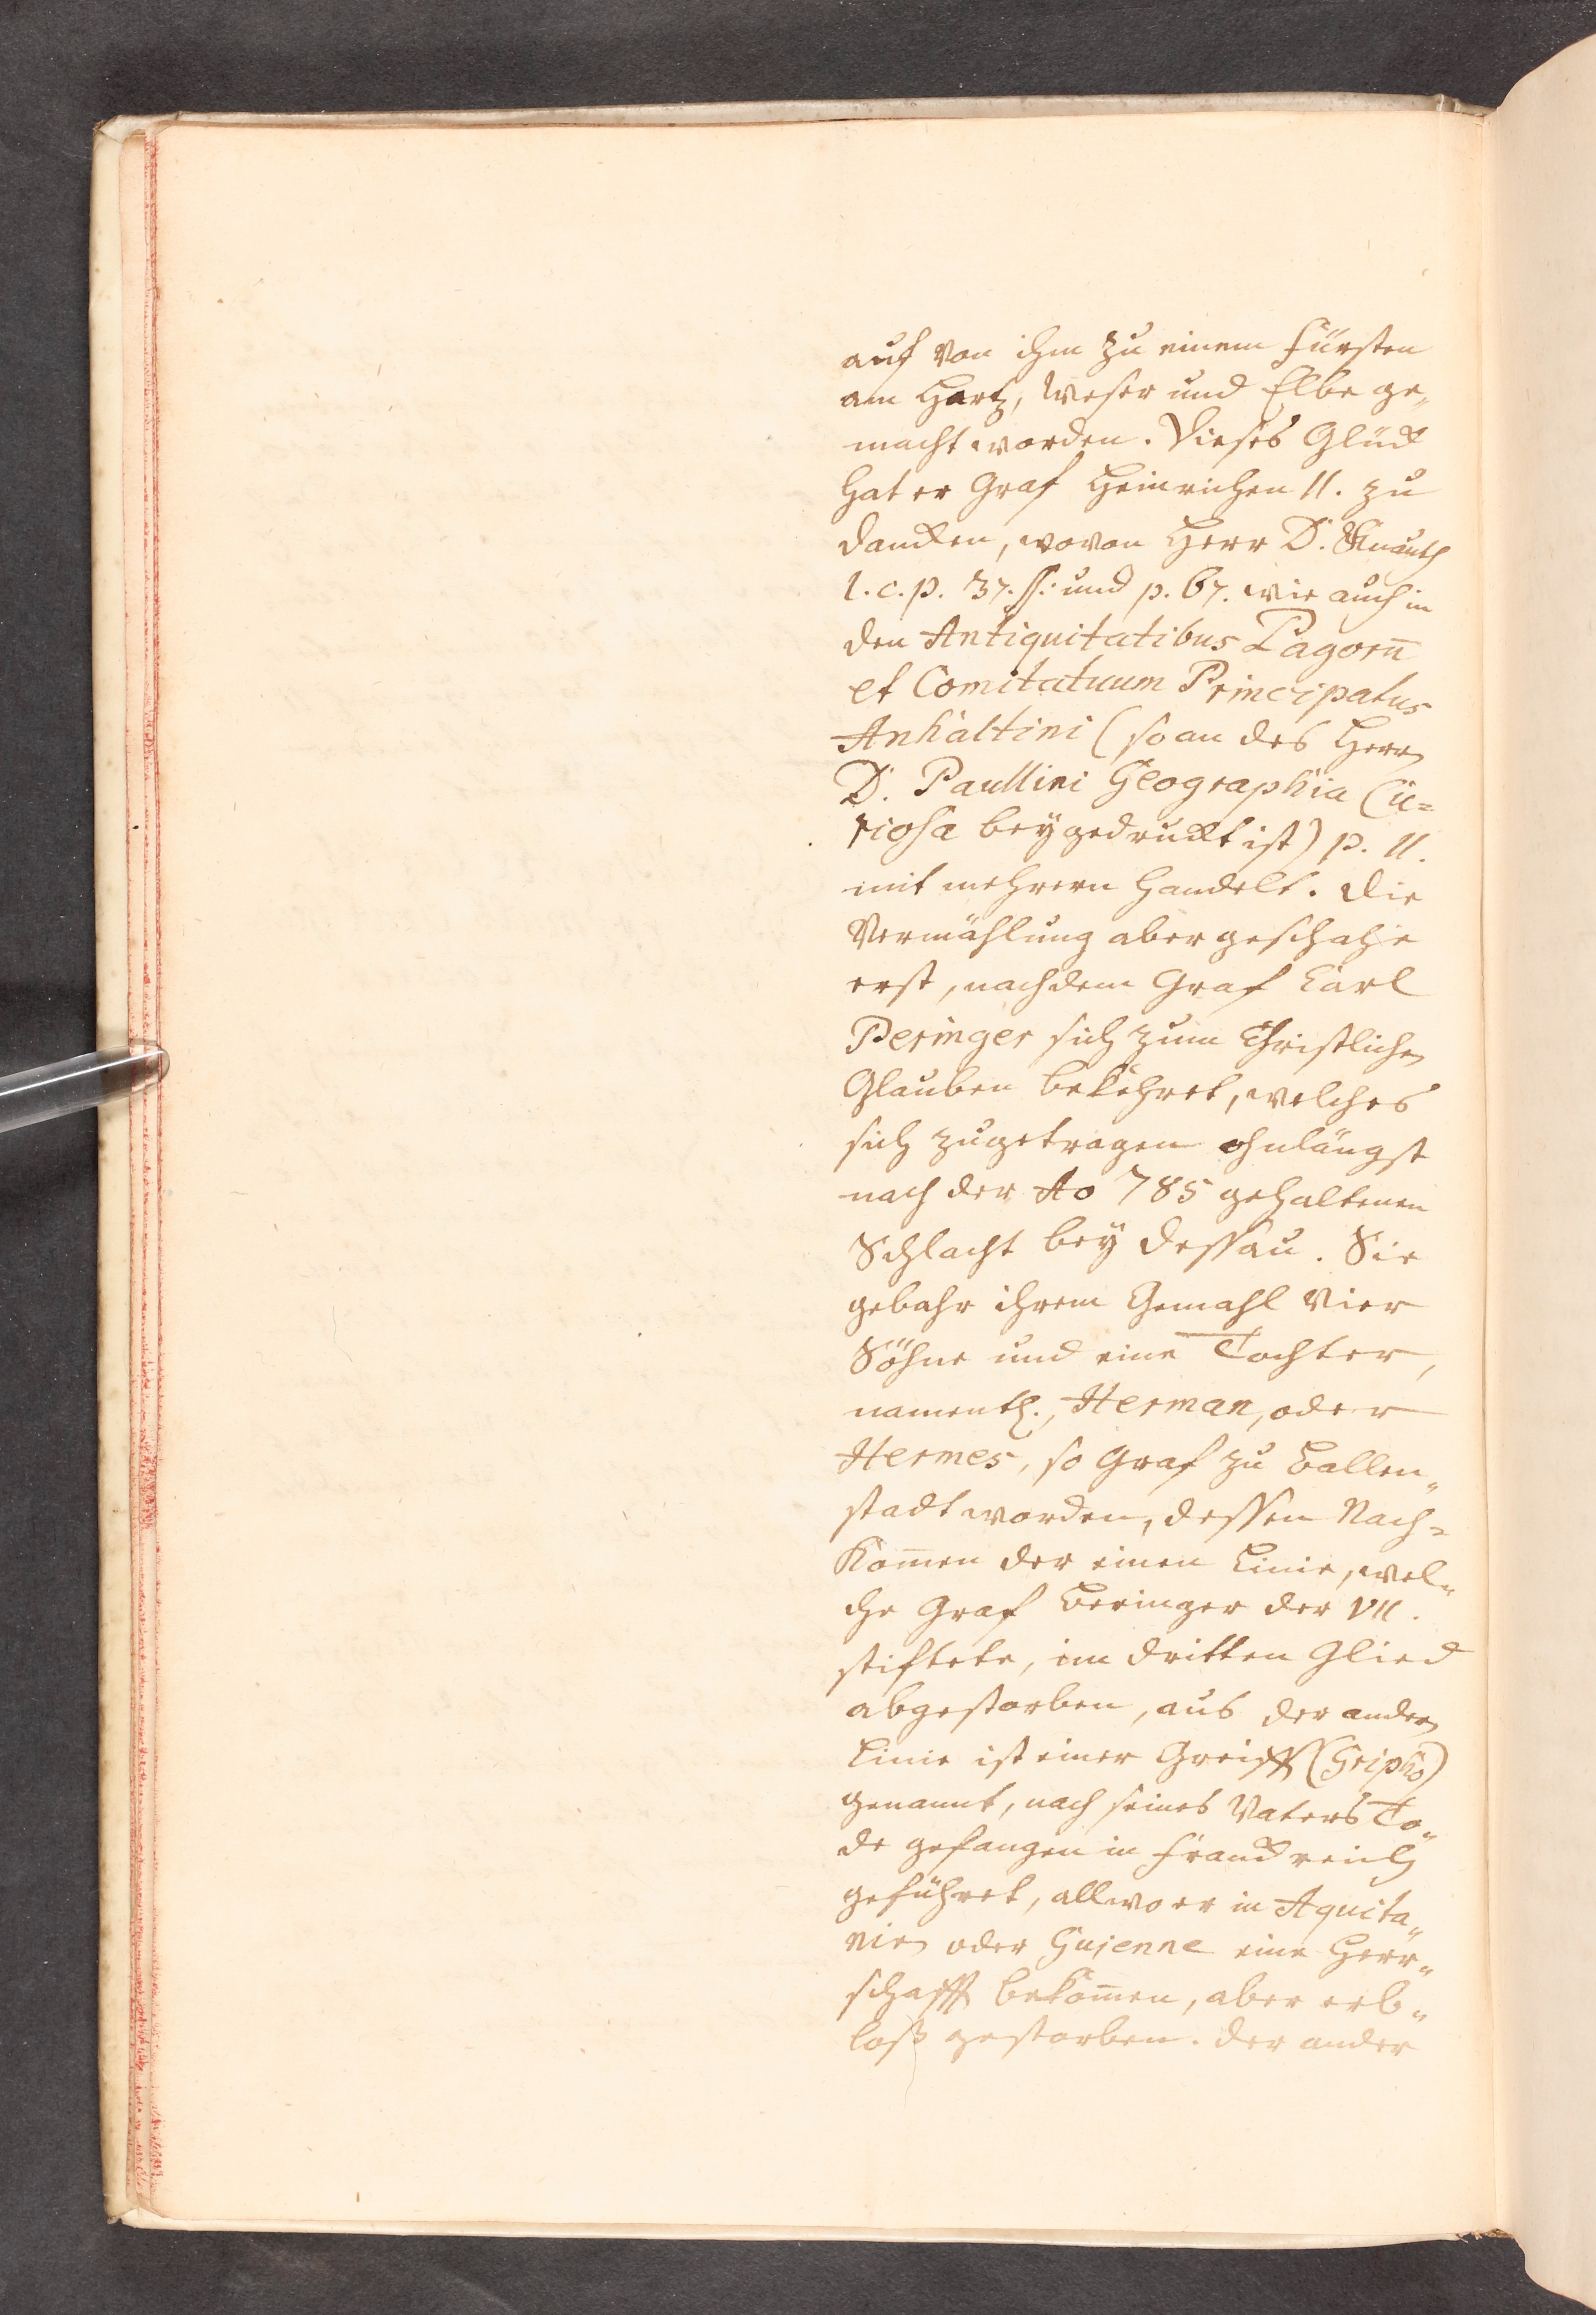 auf von ihm zu einem Fürsten
am Hartz, Weser und Elbe ge„
macht worden. Dieses Glück
hat er Graf Heinrichen II. zu
dancken, wovon Herr D. Knauth
l. c. p. 37. ſſ: und p. 67. wie auch in
den Antiquitatibus Pagorū
et Comitatuum Principatus
Anhaltini (so an des Herrn
D. Paullini Geographia Cu=
riosa beygedruckt ist) p. 11.
mit mehrern handelt. Die
Vermählung aber geschahe
erst, nachdem Graf Carl
Peringer sich zum Christlichen
Glauben bekehret, welches
sich zugetragen ohnlängst
nach der Ao 785 gehaltenen
Schlacht bey Dessau. Sie
gebahr ihrem Gemahl vier
Söhne und eine Tochter,
namentl., Herman, oder
Hermes, so Graf zu Ballen„
stadt worden, dessen Nach=
kom̄en der einen Linie, wel„
che Graf Beringer der VII.
stiftete, im dritten Glied
abgestorben, aus der andern
Linie ist einer Greiff (Gripho)
genannt, nach seines Vaters To„
de gefangen in Franckreich
geführet, allwo er in Aquita„
nien oder Gujenne eine Herr„
schafft bekom̄en, aber erb„
loß gestorben. Der ander